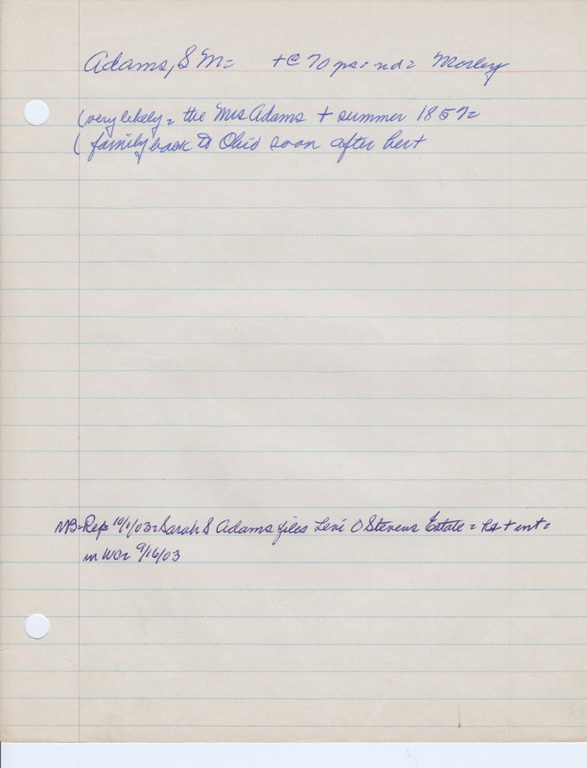 Adams, S M= +@ 70 ps: nd= Morley
(very likely = the Mrs Adams + summer 1857=
( family back to Ohio soon after her +
NB-Rep 10/1/03= Sarah S Adams files Levi O Stevens Estate = hs + ent=
in WO= 9/16/03